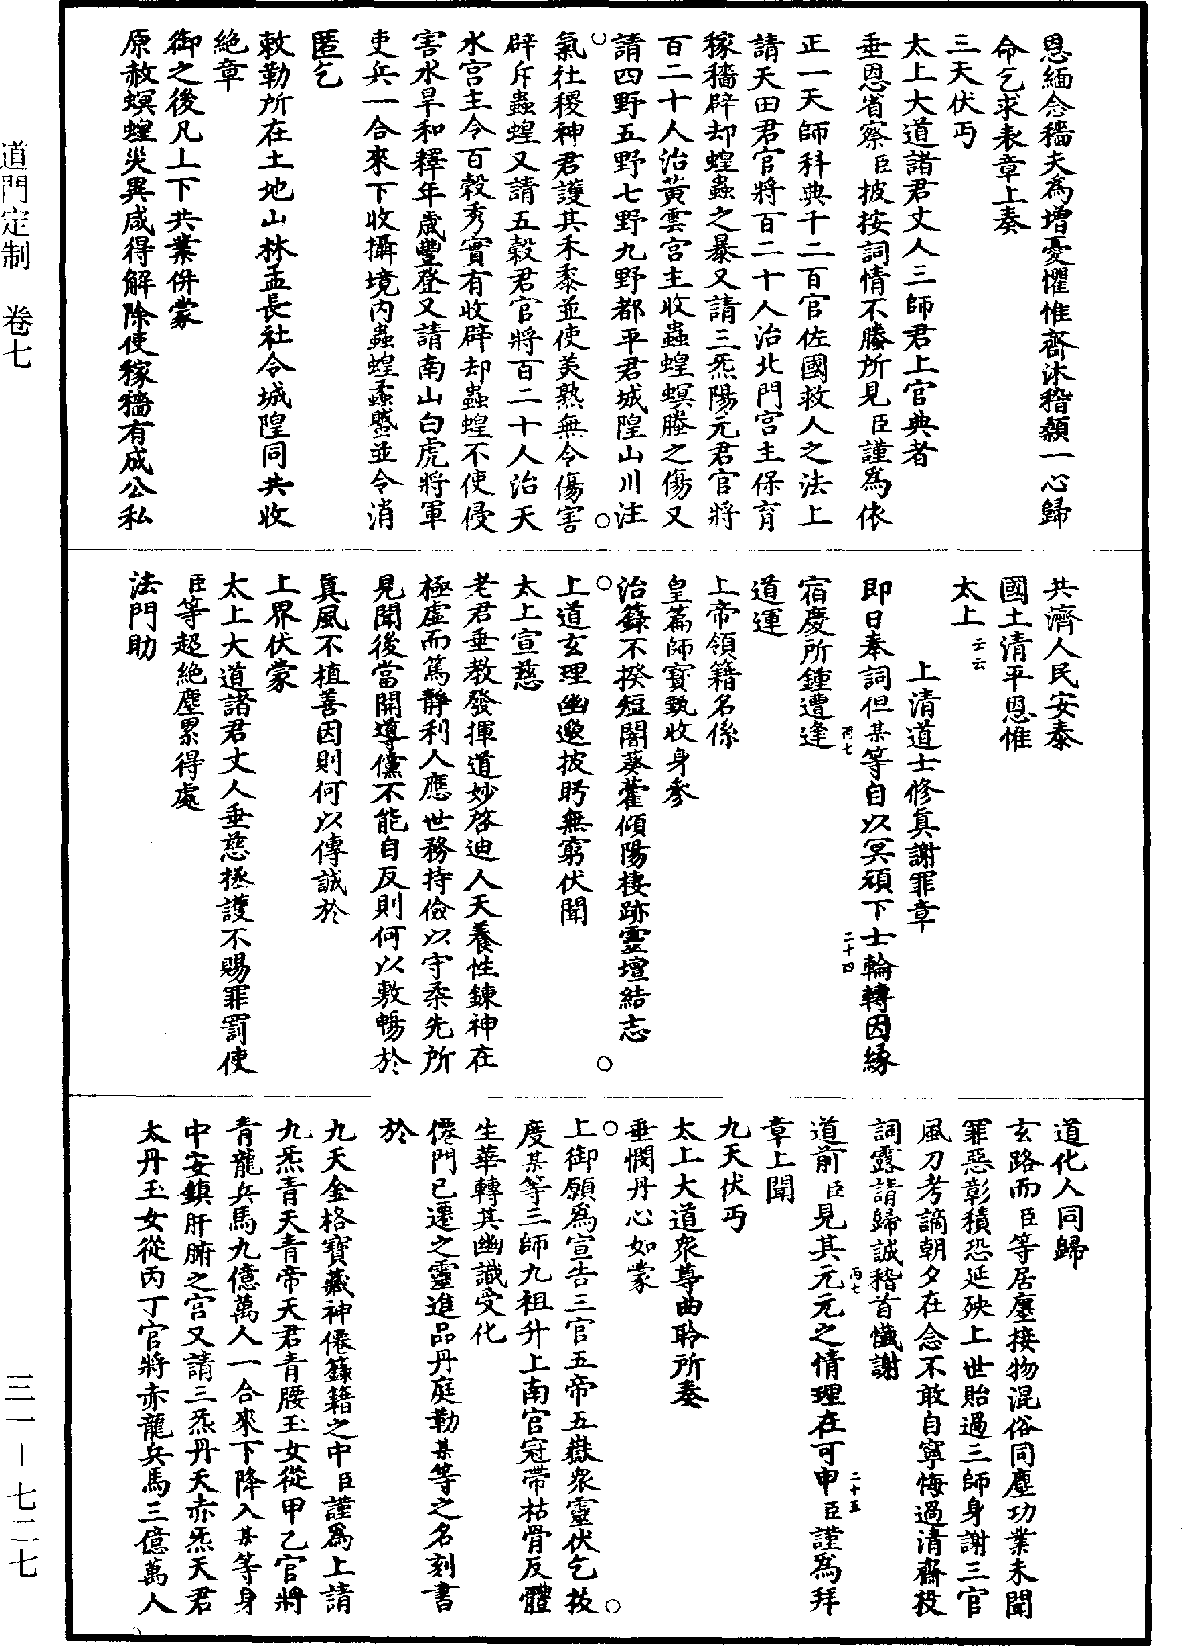 恩緬念穡夫為增憂懼惟齋沐稽顙一心歸
命乞求表章上奏
三天伏丐
太上大道諸君丈人三師君上官典者
垂恩省察臣披按詞情不勝所見臣謹為依
正一天師科典千二百官佐國救人之法上
請天田君官將百二十人治北門宮主保育
稼穡辟却蝗蟲之暴又請三炁陽元君官將
百二十人治黃雲宮主收蟲蝗螟螣之傷又
請四野五野七野九野都平君城隍山川注
氣社稷神君護其禾黍並使美熟無令傷害
辟斥蟲蝗又請五穀君官將百二十人治天
水宮主令百穀秀實有收辟却蟲蝗不使侵
害水旱和釋年歲豐登又請南山白虎將軍
吏兵一合來下收攝境内蟲蝗蟊蠈並令消
匿乞
敕勒所在土地山林孟長社令城隍同共收
絶章
御之後凡上下共業併蒙
原赦螟蝗災異咸得解除使稼穡有成公私
共濟人民安泰
國土清平恩惟
太上云云
上清道士修真謝罪章
即日奉詞但某等自以冥頑下士輪轉因緣
丙七
二十四
宿慶所鍾遭逢
道運
上帝領籍名係
皇篇師寶執收身參
治籙不揆短闇葵藿傾陽棲跡靈壇結志
上道玄理幽邈披眄無窮伏聞
太上宣慈
老君垂教發揮道妙啓迪人天養性鍊神在
極虚而篤靜利人應世務持儉以守柔先所
見聞後當開導儻不能自反則何以敷暢於
真風不植善因則何以傳誠於
上界伏蒙
太上大道諸君丈人垂慈拯護不賜罪罰使
臣等超絶塵累得處
法門助
道化人同歸
玄路而臣等居塵接物混俗同塵功業未聞
罪惡彰積恐延殃上世貽過三師身謝三官
風刀考謫朝夕在念不敢自寧悔過清齋投
詞露請歸誠稽首懺謝
道前臣見其元元之情理在可申臣謹為拜
丙七
二十五
章上聞
九天伏丐
太上大道衆尊曲聆所奏
垂憫丹心如蒙
上御願為宣告三官五帝五嶽衆靈伏乞拔
度某等三師九祖升上南宮冠帶枯骨反體
生華轉其幽識受化
僊門已遷之靈進品丹庭勒某等之名刻書
於
九天金格寶藏神僊籙籍之中臣謹為上請
九炁青天青帝天君青腰玉女從甲乙官將
青龍兵馬九億萬人一合來下降入某等身
中安鎮肝腑之宮又請三炁丹天赤炁天君
太丹玉女從丙丁官將赤龍兵馬三億萬人
道門定制　卷七
三一—七二七